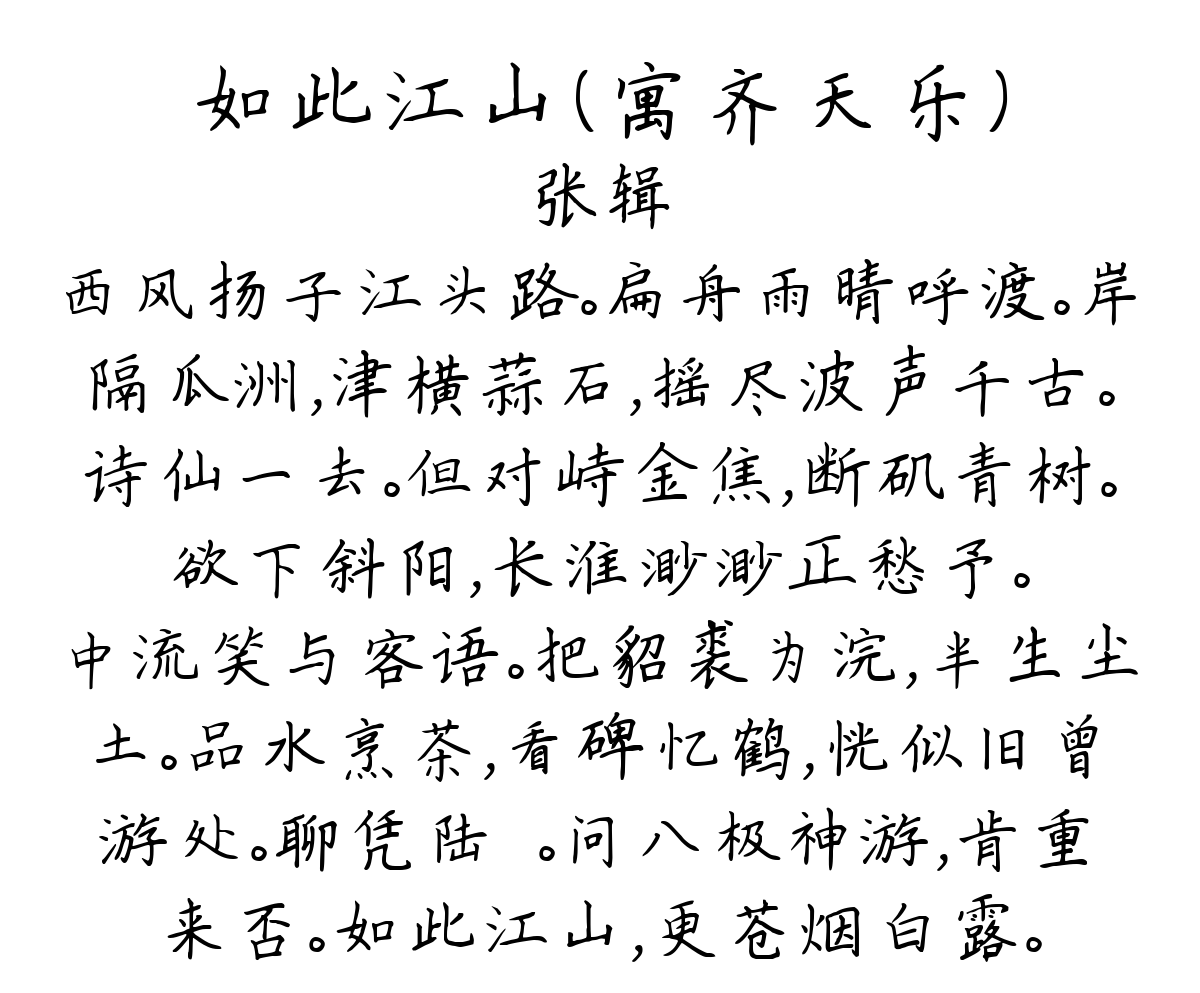 如此江山(寓齐天乐)
张辑
西风扬子江头路。扁舟雨晴呼渡。岸
隔瓜洲,津横蒜石,摇尽波声千古。
诗仙一去。但对峙金焦,断矶青树。
欲下斜阳,长淮渺渺正愁予。
中流笑与客语。把貂裘为浣,半生尘
土。品水烹茶,看碑忆鹤,恍似旧曾
游处。聊凭陆 。问八极神游,肯重
来否。如此江山,更苍烟白露。